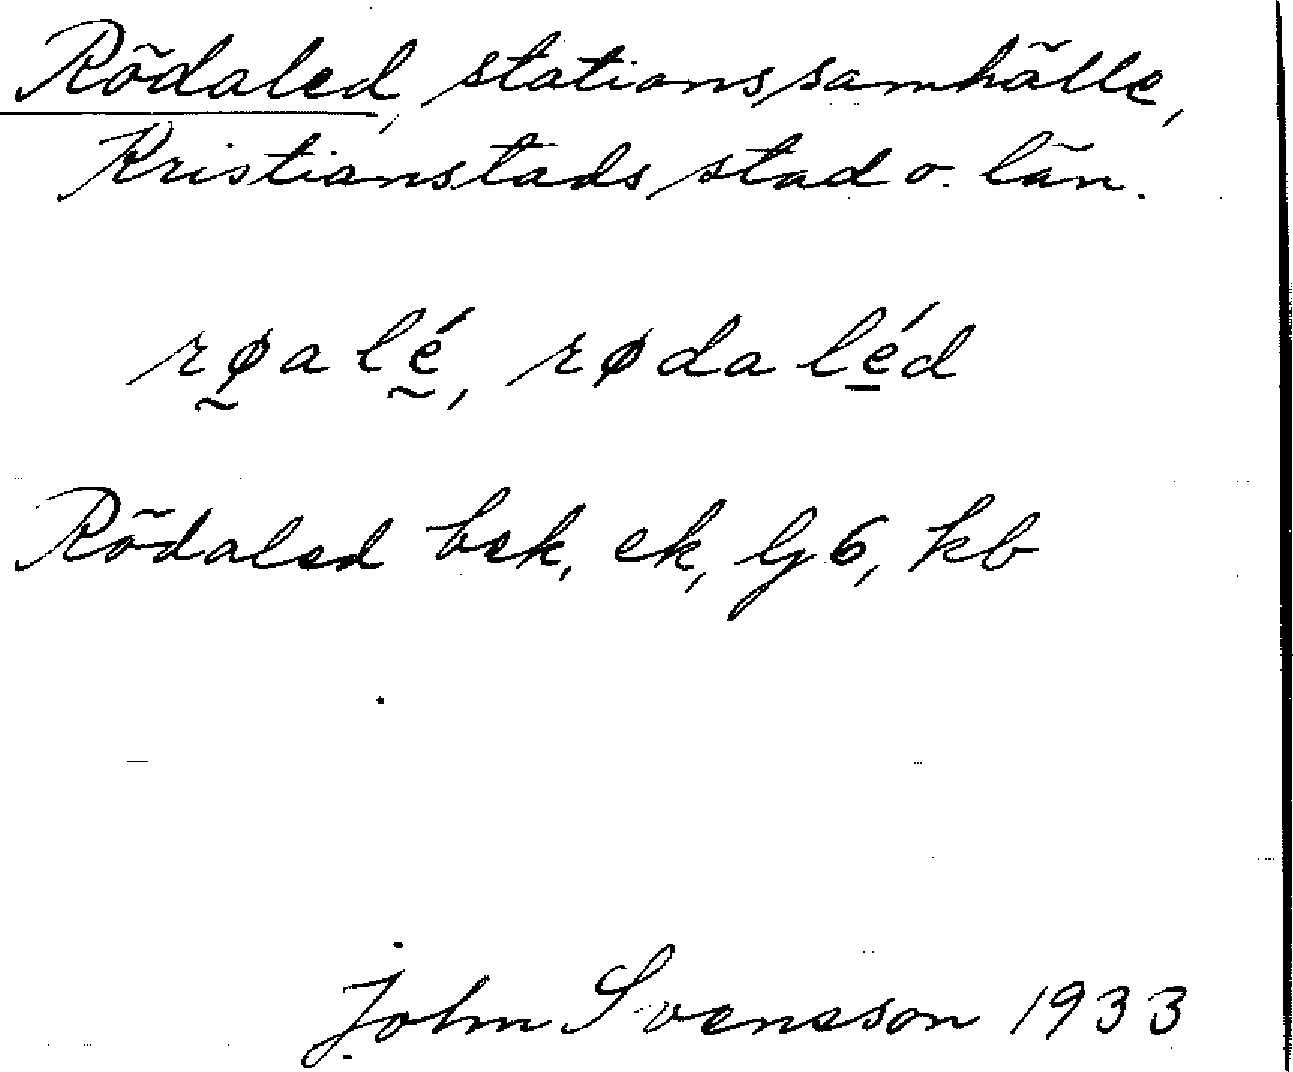 Rödaled, stationssamhälle,
Kristianstads stad o. län.
rø̰alḛ́, rødalé̱d
Rödaled bek, ek, lj6, kb
John Svensson 1933